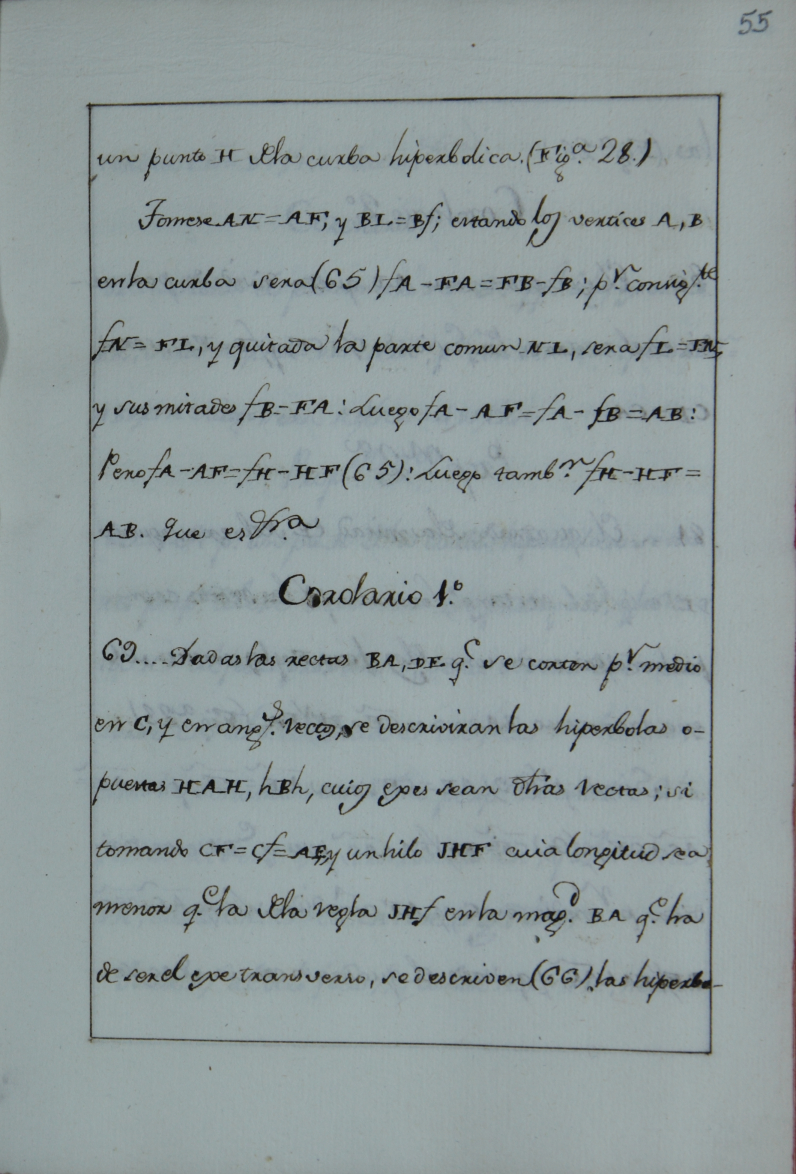 55
un punto H dela curba hiperbolica. (Fig.ª 28.)
Tomese AN = AF, y BL = Bf; estando los vertices A, B
en la curba sera (65) fA - FA = FB - fB; p.r consig.te
fN = FL, y quitada la parte comun NL, sera fL = FN,
y sus mitades fB = FA: Luego fA - AF = fA - fB = AB:
Pero fA - AF = fH - HF (65): Luego tamb.n fH - HF =
AB. Que es
Corolario 1.º
69.... Dadas las rectas BA, DE q.e se corten p.r medio
en C, y en ang.s rectos, se descriviran las hiperbolas o-
puestas HAH, hBh, cuios exes sean dhas rectas; si
tomando CF = Cf = AE, y un hilo JHF cuia longitud sea
menor q.e la dela regla JHf en la mag.d BA q.e ha
de ser el exe transverso, se descriven (66) las hiperbo-